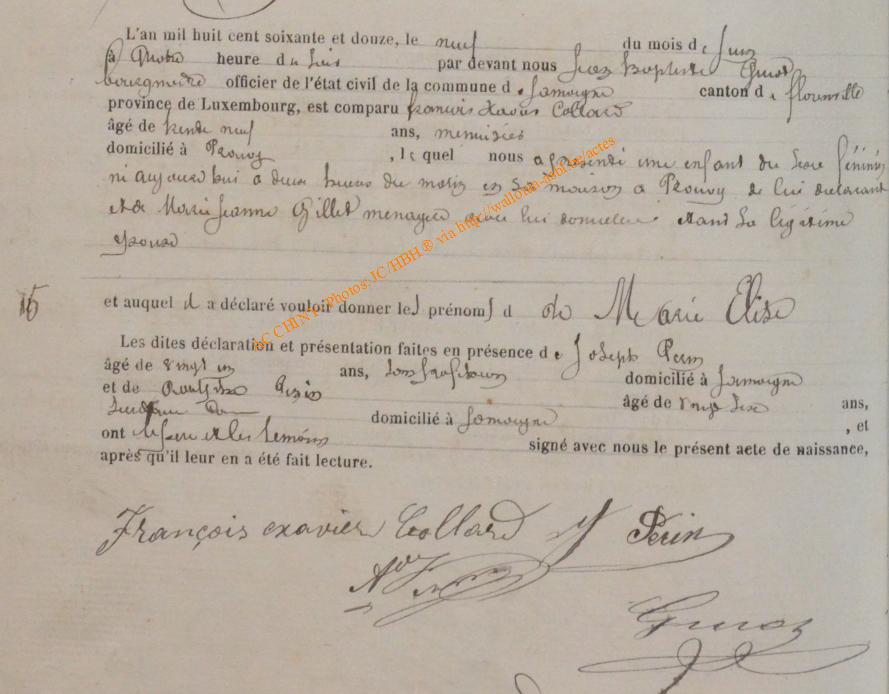 L'an mil huit cent soixante et douze, le neuf du mois de Juin
à quatre heure du soir par devant nous Jean Baptiste
bourgmestre officier de l'état civil de la commune de Jamoigne canton de florenville
province de Luxembourg, est comparu francois Xavier Collard
âgé de trente neuf ans, menuisier
domicilié à Prouvy, le quel nous a présenté une enfant du sexe féminin
né aujourd'hui a deux heures du matin en sa maison a Prouvy de lui déclarant
et de Marie Jeanne Gillet menagere avec lui domiciliée etant sa légitime
épouse
16
et auquel il a déclaré vouloir donner les prénoms d de Marie Elise
Les dites déclaration et présentation faites en présence de Joseph Perin
âgé de vingt un ans, sans profession domicilié à Jamoigne
et de âgé de vingt six ans,
domicilié à Jamoigne, et
ont le pere et les temoins signé avec nous le présent acte de naissance,
après qu'il leur en a été fait lecture.
François exavier Collard J Perin
AC CHINY - Photos: JC/HBH® via http://wallonia-asbl.be/actes